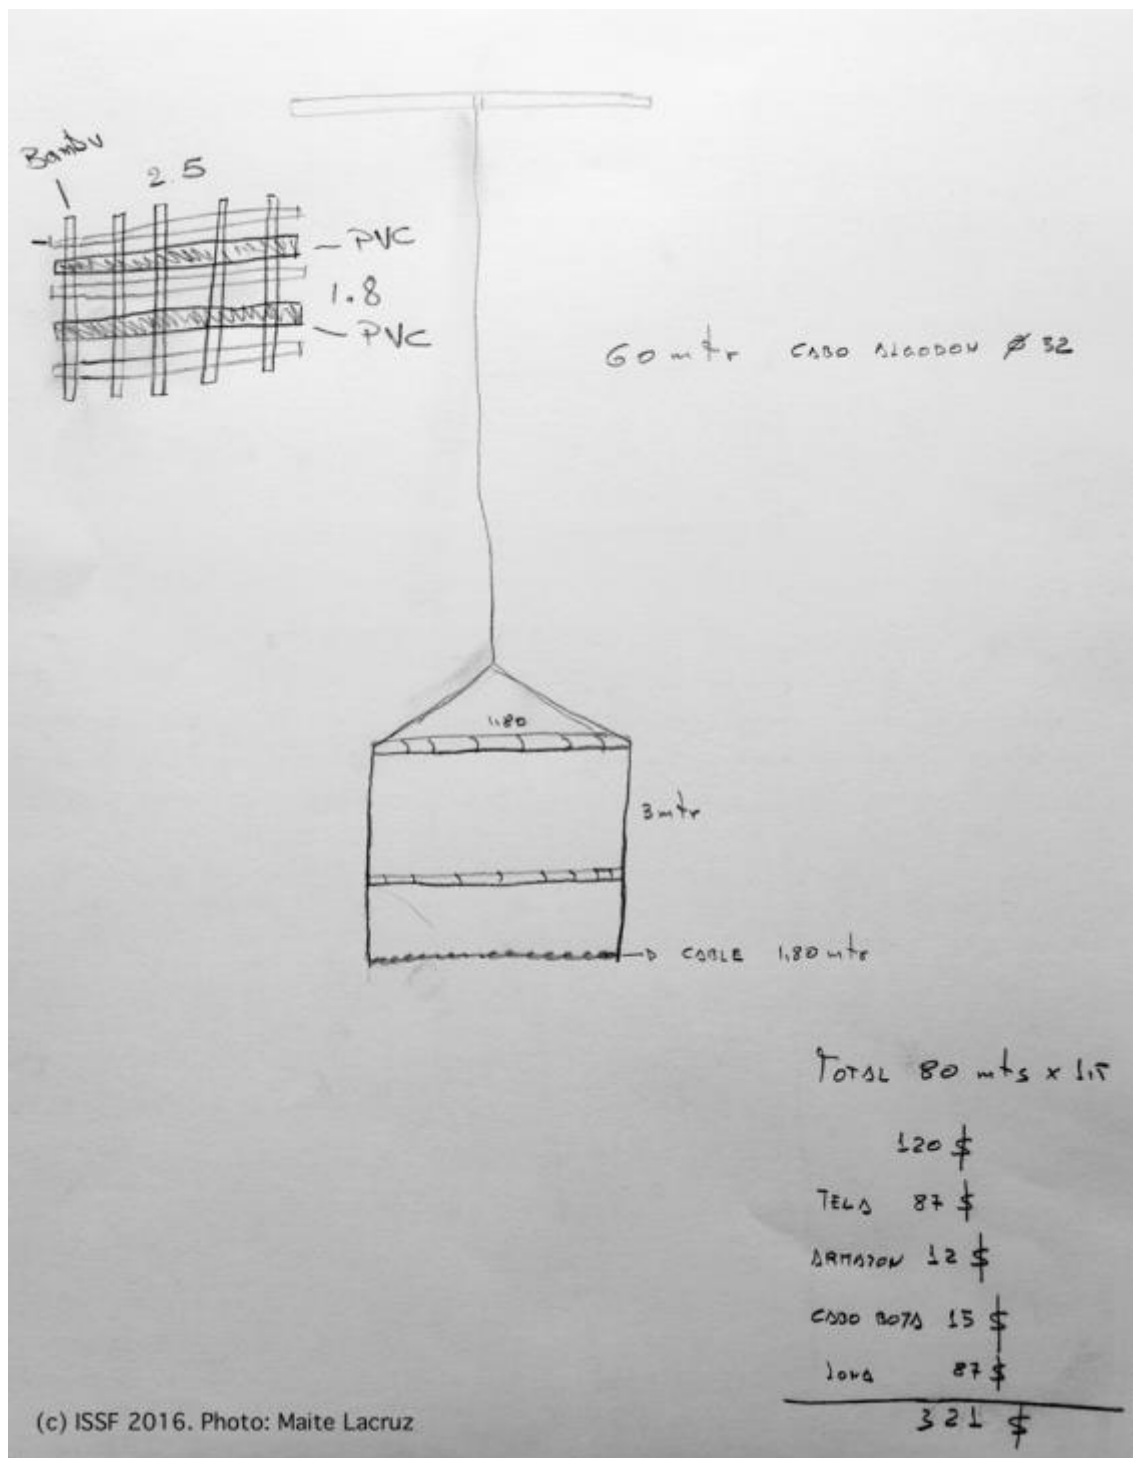 Bambu
2.5
PVC
1.8
PVC
60 mtr CABO ALGODON Ø 32
1.80
3 mtr
CABLE 1,80 mtr
TOTAL 80 mts x 1.5
120 $
TELA 87 $
ARMAZON 12 $
CABO BOYA 15 $
LONA 87 $
321 $
(c) ISSF 2016. Photo: Maite Lacruz